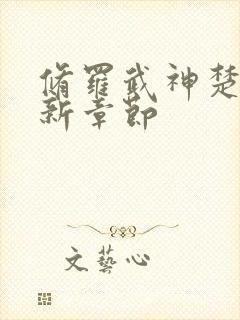 脩羅武神楚
新章節
文藝心